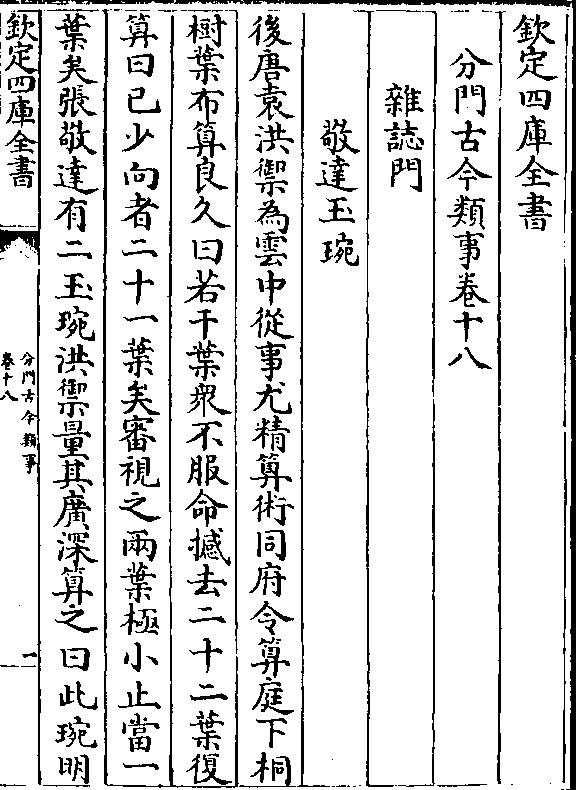 欽定四庫全書
分門古今類事卷十八
雜誌門
敬達玉琬
後唐袁洪禦為雲中從事尤精算術同府令算庭下桐
樹葉布算良久曰若干葉衆不服命撼去二十二葉復
算曰已少向者二十一葉矣審視之兩葉極小止當一
葉矣張敬達有二玉琬洪禦量其廣深算之曰此琬明
欽定四庫全書
分門古今類事
卷十八
一